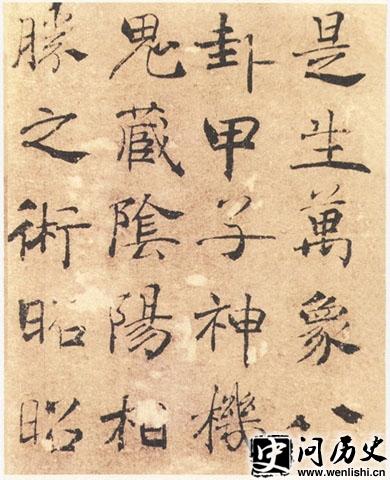 是生萬象八
卦甲子神機
鬼藏陰陽相
勝之術昭昭
史问历史
www.wenlishi.cn